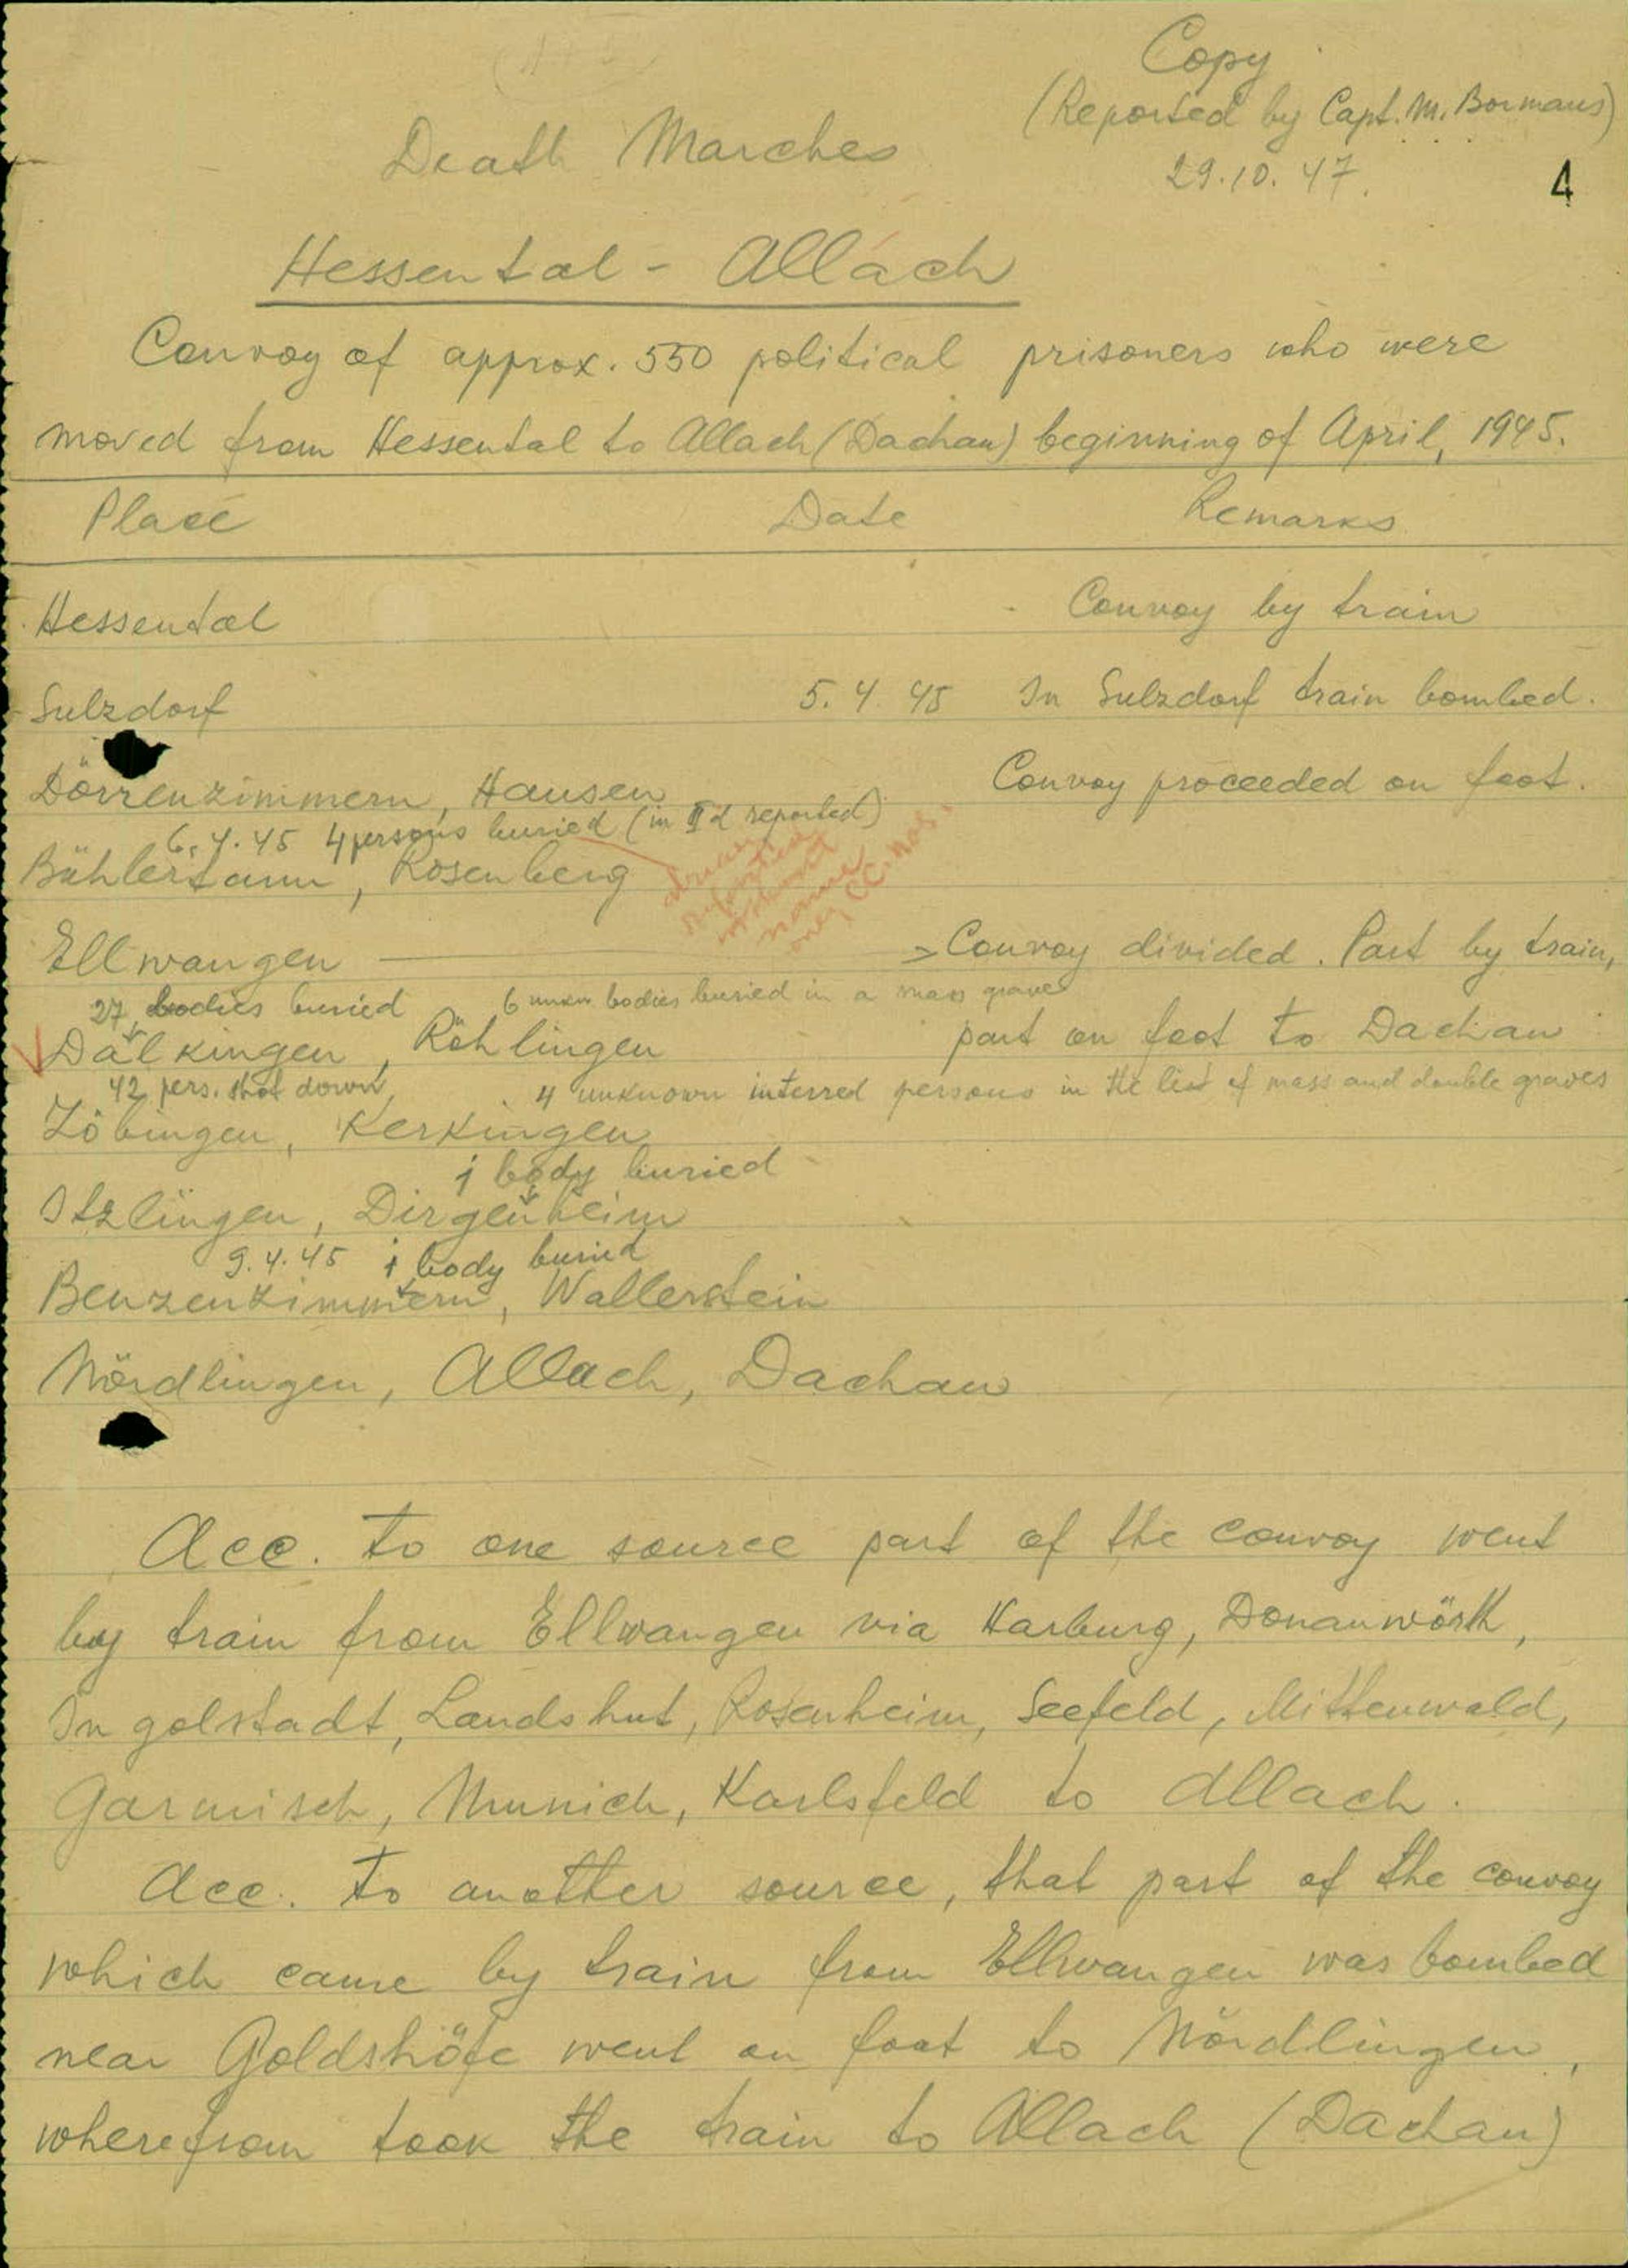 Copy
(Reported by Capt. M. Bormans)
Death Marches
29.10.47.
4
Hessental - Allach
Convoy of approx. 550 political prisoners who were
moved from Hessental to Allach (Dachau) beginning of April, 1945.
Place Date Remarks
Hessental Convoy by train
Sulzdorf 5.4.45 In Sulzdorf train bombed.
Dörrenzimmern, Hausen Convoy proceeded on foot.
6.4.45 4 persons buried (in reported)
Bühlertann, Rosenberg
without
name
only CC. Nos.
Ellwangen > Convoy divided. Part by train,
27 bodies buried 6 unkn bodies buried in a mass grave
Dalkingen, Röhlingen part on foot to Dachau
42 pers. shot down 4 unknown interred persons in the list of mass and double graves
Zöbingen, Kerkingen
1 body buried
Itzlingen, Dirgenheim
9.4.45 1 body buried
Benzenzimmern, Wallerstein
Nördlingen, Allach, Dachau
Acc. to one source part of the convoy went
by train from Ellwangen via Harburg, Donauwörth,
Ingolstadt, Landshut, Rosenheim, Seefeld, Mittenwald,
Garmisch, Munich, Karlsfeld to Allach.
Acc. to another source, that part of the convoy
which came by train from Ellwangen was bombed
near Goldshöfe went on foot to Nördlingen,
wherefrom took the train to Allach (Dachau)